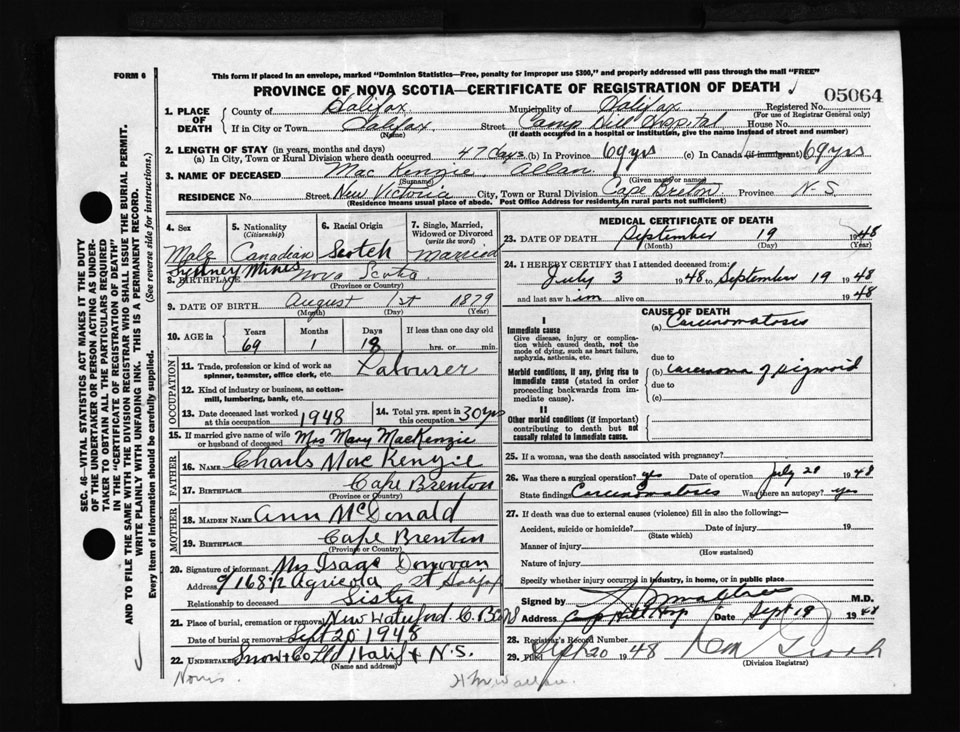 FORM 6
This form if placed in an envelope, marked "Dominion Statistics—Free, penalty for improper use $300," and properly addressed will pass through the mail "FREE"
PROVINCE OF NOVA SCOTIA—CERTIFICATE OF REGISTRATION OF DEATH
05064
1. PLACE OF DEATH County of Halifax Municipality of Halifax Registered No. (For use of Registrar General only)
If in City or Town Halifax (Name) Street Camp Hill Hospital House No.
(If death occurred in a hospital or institution, give the name instead of street and number)
2. LENGTH OF STAY (in years, months and days)
(a) In City, Town or Rural Division where death occurred 47 days (b) In Province 69 yrs (c) In Canada (if immigrant) 69 yrs
3. NAME OF DECEASED Mac Kenzie Allan
(Surname) (Given name or name)
RESIDENCE No. Street New Victoria City, Town or Rural Division Cape Breton Province N.S.
(Residence means usual place of abode. Post Office Address for residents in rural parts not sufficient)
4. Sex Male
5. Nationality (Citizenship) Canadian
6. Racial Origin Scotch
7. Single, Married, Widowed or Divorced (write the word) Married
Sydney Mines
8. BIRTHPLACE Nova Scotia
(Province or Country)
9. DATE OF BIRTH August 1st 1879
(Month) (Day) (Year)
10. AGE in Years 69 Months 1 Days 18 If less than one day old hrs. or min.
OCCUPATION
11. Trade, profession or kind of work as spinner, teamster, office clerk, etc. Labourer
12. Kind of industry or business, as cotton-mill, lumbering, bank, etc.
13. Date deceased last worked at this occupation 1948
14. Total yrs. spent in this occupation 30 yrs
15. If married give name of wife or husband of deceased Mrs Mary MacKenzie
FATHER
16. NAME Charls Mac Kenzie
17. BIRTHPLACE Cape Brenton
(Province or Country)
MOTHER
18. MAIDEN NAME Ann McDonald
19. BIRTHPLACE Cape Brenton
(Province or Country)
20. Signature of informant Mrs Donovan
Address Agricola St Halifax
Relationship to deceased Sister
21. Place of burial, cremation or removal New Waterford C.B.
Date of burial or removal Sept 20 1948
22. Undertaker Snow + Co Ltd Halifx N.S.
(Name and address)
MEDICAL CERTIFICATE OF DEATH
23. DATE OF DEATH September 19 1948
(Month) (Day) (Year)
24. I HEREBY CERTIFY that I attended deceased from:
July 3 1948 to September 19 1948
and last saw h im alive on 1948
CAUSE OF DEATH
I
Immediate cause
Give disease, injury or complication which caused death, not the mode of dying, such as heart failure, asphyxia, asthenia, etc.
(a) Carcinomatosis
due to
Morbid conditions, if any, giving rise to immediate cause (stated in order proceeding backwards from immediate cause).
(b) Carcinoma of sigmoid
due to
(c)
II
Other morbid conditions (if important) contributing to death but not causally related to immediate cause.
25. If a woman, was the death associated with pregnancy?
26. Was there a surgical operation? yes Date of operation July 20 1948
State findings Carcinomatosis Was there an autopsy? yes
27. If death was due to external causes (violence) fill in also the following:—
Accident, suicide or homicide? Date of injury 19
(State which)
Manner of injury
(How sustained)
Nature of injury
Specify whether injury occurred in industry, in home, or in public place
Signed by M.D.
Address Camp Hill Hosp Date Sept 19 1948
28. Registrar's Record Number
29. Filed Sept 20 1948
(Division Registrar)
SEC. 46—VITAL STATISTICS ACT MAKES IT THE DUTY OF THE UNDERTAKER OR PERSON ACTING AS UNDERTAKER TO OBTAIN ALL THE PARTICULARS REQUIRED IN THE "CERTIFICATE OF REGISTRATION OF DEATH" AND TO FILE THE SAME WITH THE DIVISION REGISTRAR WHO SHALL ISSUE THE BURIAL PERMIT.
WRITE PLAINLY WITH UNFADING INK. THIS IS A PERMANENT RECORD.
Every item of information should be carefully supplied. (See reverse side for instructions.)